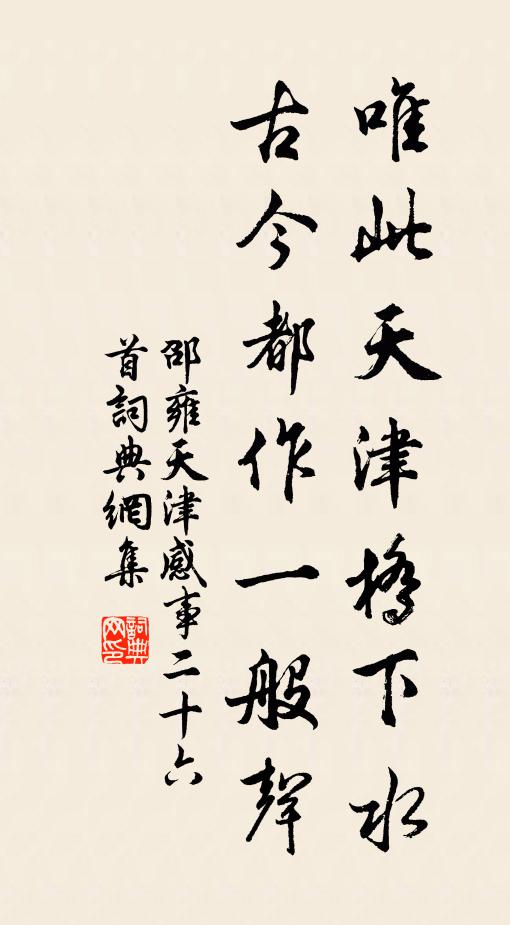 唯此天津橋下水
古今都作一般聲
邵雍天津感事二十六
首詞典網集
詞典网印